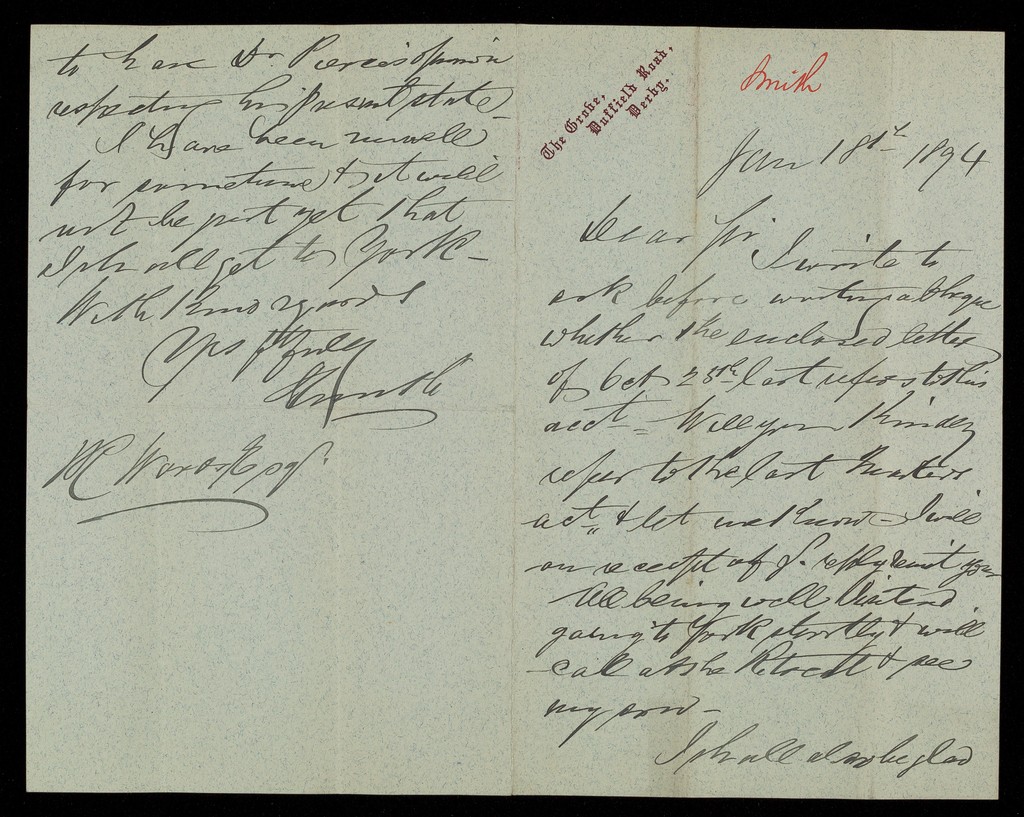 The Grove,
Duffield Road,
Derby.
Smith
Jan 18th 1894
Dear Sir
I write to
ask before writing a cheque
whether the enclosed letter
of Oct 25th last refers to this
acct = Will you Kindly
refer to the last Quarters
act & let me know - I will
on receipt of yr. reply remit you
All being well I intend
going to York shortly & will
call at the Retreat & see
my son -
I shall also be glad
to have Dr Pierce's opinion
respecting his present state -
I have been unwell
for sometime & it will
not be just yet that
I shall get to York -
With Kind regards
Yrs ffully
Smith
Wards Esqr.